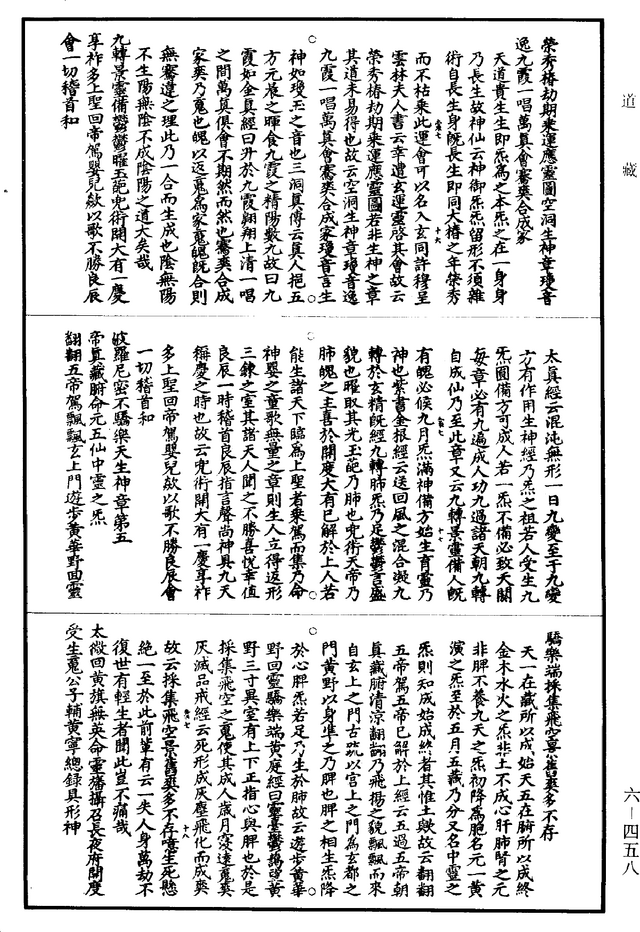 道藏
榮秀椿劫期乘運應靈圖空洞生神章瓊音
逸九霞一唱萬真會騫爽合成家
天道貴生生即炁爲之本炁之在一身身
乃長生故神仙云神御炁炁留形不須雜
術自長生身旣長生即同大椿之年榮秀
而不枯乘此運會可以名入玄同許穆呈
雲林夫人書云幸遭玄運靈啓其會故云
榮秀椿劫期乘運應靈圖若非生神之章
其道未易得也故云空洞生神章瓊音逸
九霞一唱萬真會騫爽合成家瓊音言生
神如瓊玉之音也三洞真傳云真人挹五
方元晨之暉食九霞之精陽數九故曰九
霞如金真經曰升於九霞翔翔上清一唱
之間萬真俱會不期然而然也騫爽合成
家爽乃䰟也魄以返䰟爲家䰟魄旣合則
無騫違之理此乃一合而生成也陰無陽
不生陽無陰不成陰陽之道大矣哉
九轉景靈備鬱鬱曜玉葩兜術開大有一慶
享祚多上聖回帝駕嬰兒歘以歌不勝良辰
會一切稽首和
太真經云混沌無形一日九變至于九變
方有作用生神經乃炁之祖若人受生九
炁圓備方可成人若一炁不備必致天閼
每章必有九遍成人功九過諸天朝九轉
自成仙乃至此章又云九轉景靈備人旣
有魄必候九月炁滿神備方始生育靈乃
神也紫書金根經云送回風之混合凝九
轉於玄精旣經九轉肺炁乃足鬱鬱言盛
貌也曜取其光玉葩乃肺也兜術天帝乃
肺魄之主喜於開慶大有已解於上人若
能生諸天下臨爲上聖者乘駕而集乃命
神嬰之童歌無量之章則生人立得返形
三鍊之室其諸天人聞之不勝喜悅幸值
良辰一時稽首良辰指言聲尚神具九天
稱慶之時也故云兜術開大有一慶享祚
多上聖回帝駕嬰兒歘以歌不勝良辰會
一切稽首和
波羅尼密不驕樂天生神章第五
帝真藏腑命元五仙中靈之炁
翻翻五帝駕飄飄玄上門遊步黃華野回靈
驕樂端採集飛空景舊爽多不存
天一在藏所以成始天五在腑所以成終
金木水火之炁非土不成心肝肺腎之元
非脾不養九天之炁初降爲胞名元一黃
演之炁至於五月五藏乃分又名中靈之
炁則知成始成終者其惟土歟故云翻翻
五帝駕五帝已解於上經云五過五帝朝
真藏腑清涼翻翻乃飛揚之貌飄飄而來
自玄上之門古䟽以宮上之門爲玄都之
門黃野以身準之乃脾也脾之相生炁降
於心脾炁若足乃生於肺故云遊步黃華
野回靈驕樂端黃庭經曰靈臺鬱鬱望黃
野三寸異室有上下正指心與脾也於是
採集飛空之䰟使其成人歲月寖遠䰟爽
灰滅品戒經云死形成灰塵飛化而成爽
故云採集飛空景舊爽多不存噫生死懸
絶一至於此前輩有云一失人身萬劫不
復世有輕生者聞此豈不痛哉
太微回黃旗無英命靈旛攝召長夜府開度
受生䰟公子輔黃寧總錄具形神
六－四五八